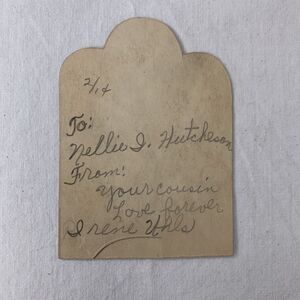 2/14
To:
Nellie I. Hutcheson
From:
your cousin
Love forever
Irene Uhls